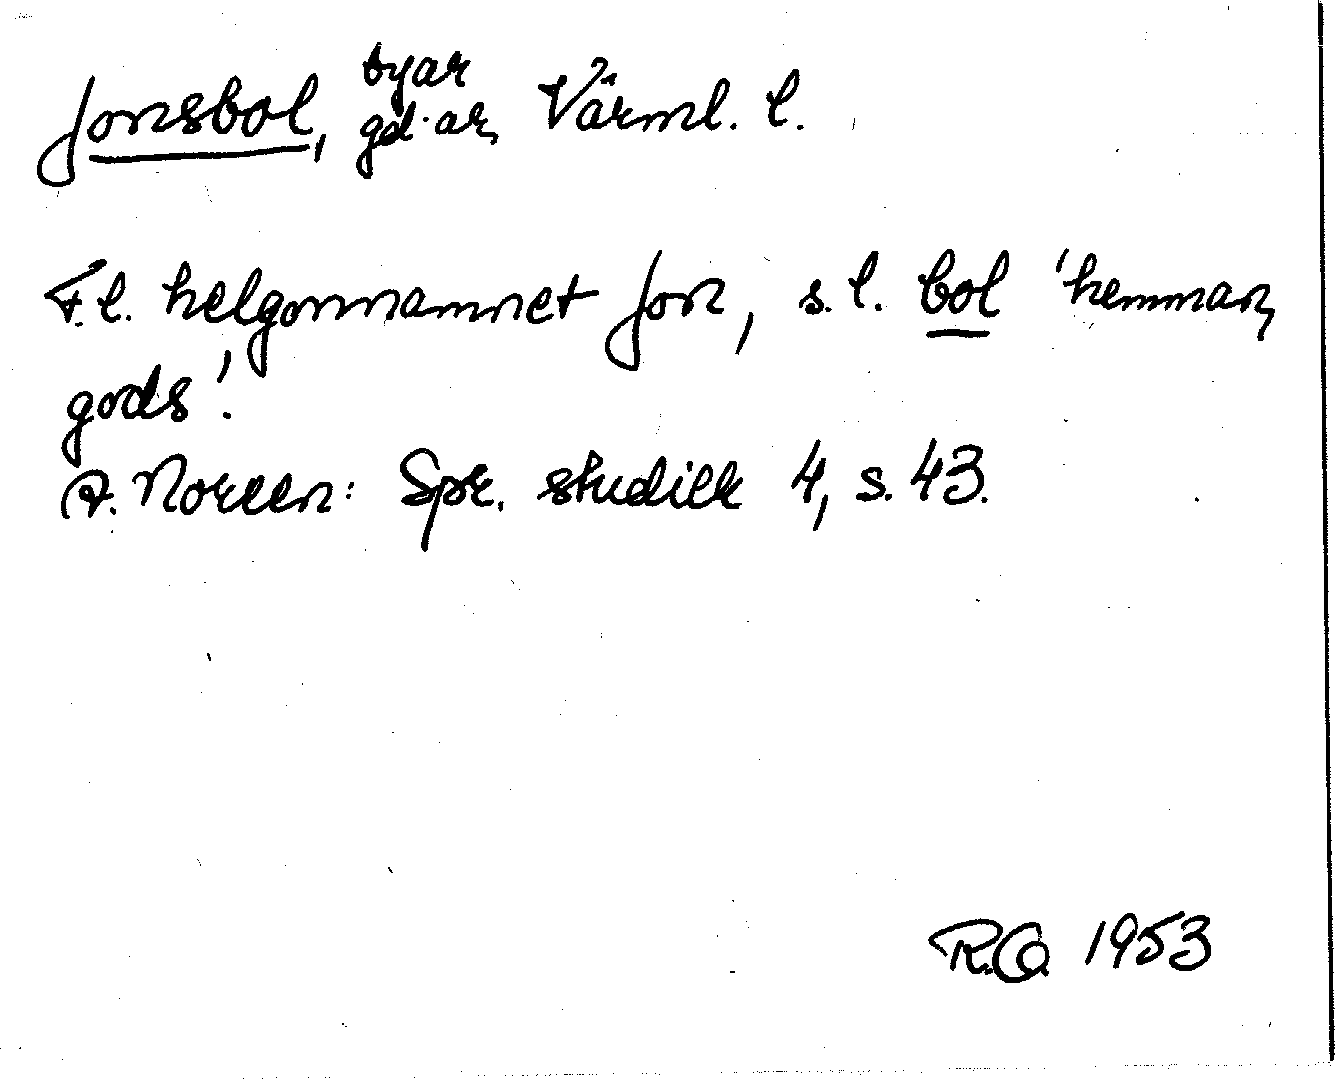 Jonsbol, byar gd·ar, Värml. l.
F.l. helgonnamnet Jon, s.l. bol 'hemman,
gods'.
A. Noreen: Spr. studier 4, s. 43.
R.O 1953